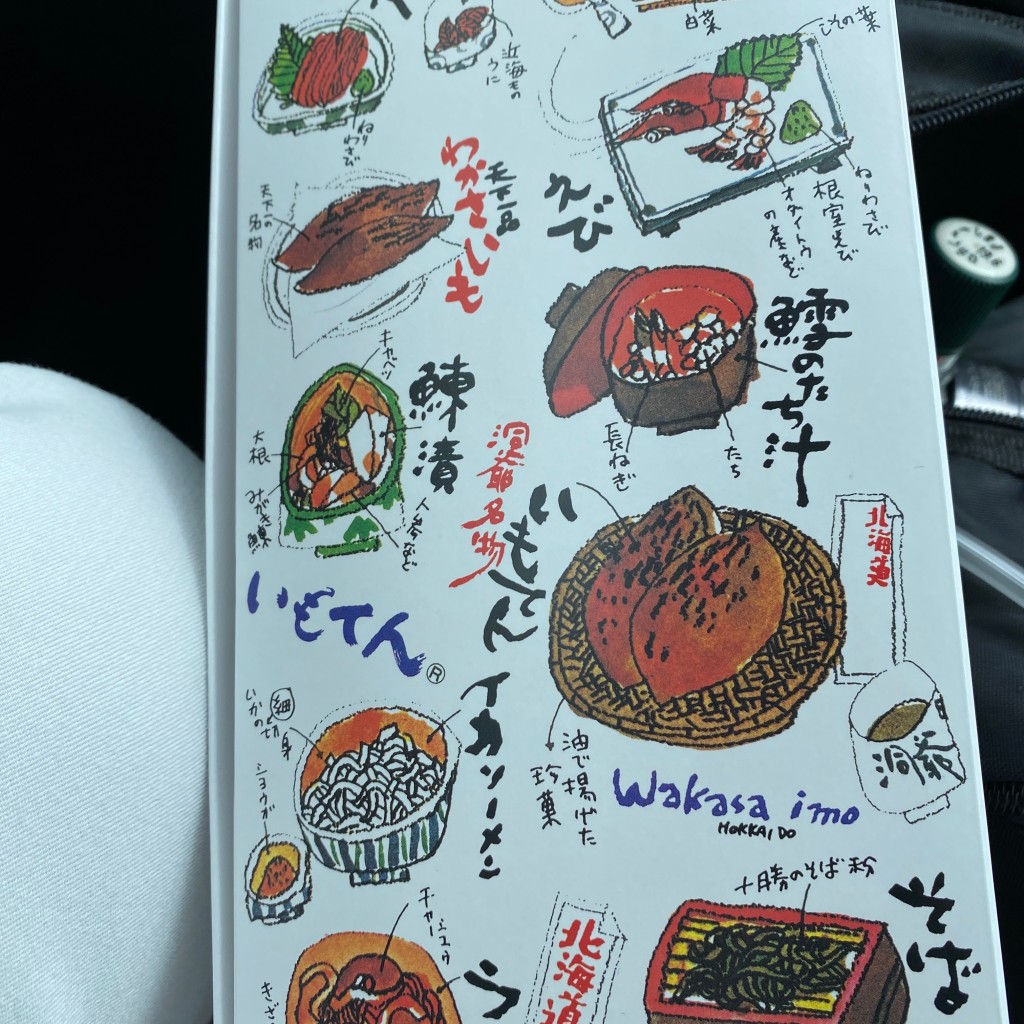 近海もの
うに
白菜
しその葉
ねりわさび
わかさいも
天下一品
天下一の
名物
えび
ねりわさび
根室えび
オダイトウ
の産など
鱈のたち汁
たち
長ねぎ
キャベツ
鰊漬
大根
みがき鰊
人参など
洞爺名物
いもてん
北海道
いもてん®
油で揚げた
珍菓
洞爺
Wakasa imo
HOKKAIDO
イカソーメン
いかの細切身
ショウガ
十勝のそば粉
そば
北海道
チャーシュウ
ラ
きざ